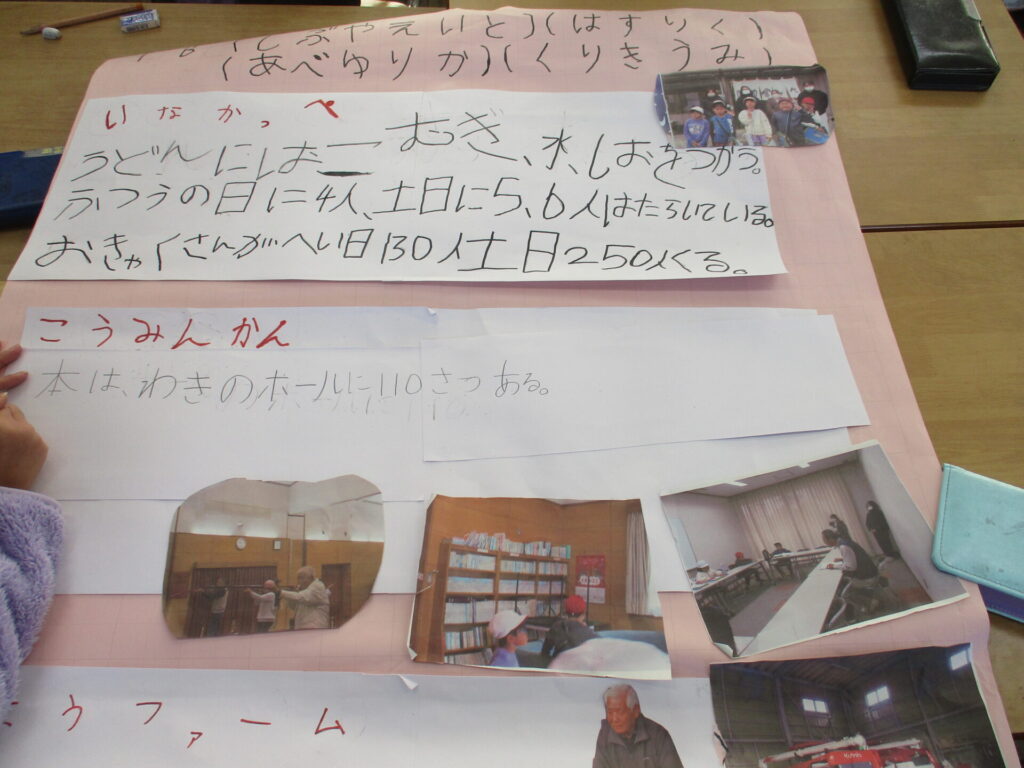 (しぶやえいと)(はすりく)
(あべゆりか)(くりきうみ)
いなかっぺ
うどんにはこむぎ、水、しおをつかう。
ふつうの日に4人、土日に5、6人はたらいている。
おきゃくさんがへい日130人土日250人くる。
こうみんかん
本は、わきのホールに110さつある。
うファーム